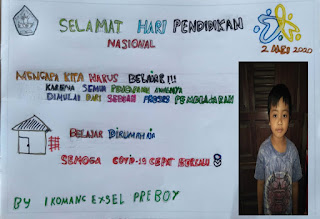 SELAMAT HARI PENDIDIKAN
NASIONAL
2 MEI 2020
MENGAPA KITA HARUS BELAJAR!!!
KARENA SEMUA
DIMULAI DARI SEBUAH PROSES PEMBELAJARAN
BELAJAR DIRUMAH
SEMOGA COVID-19 CEPAT BERLALU
BY IKOMANG EXSEL PREBOY